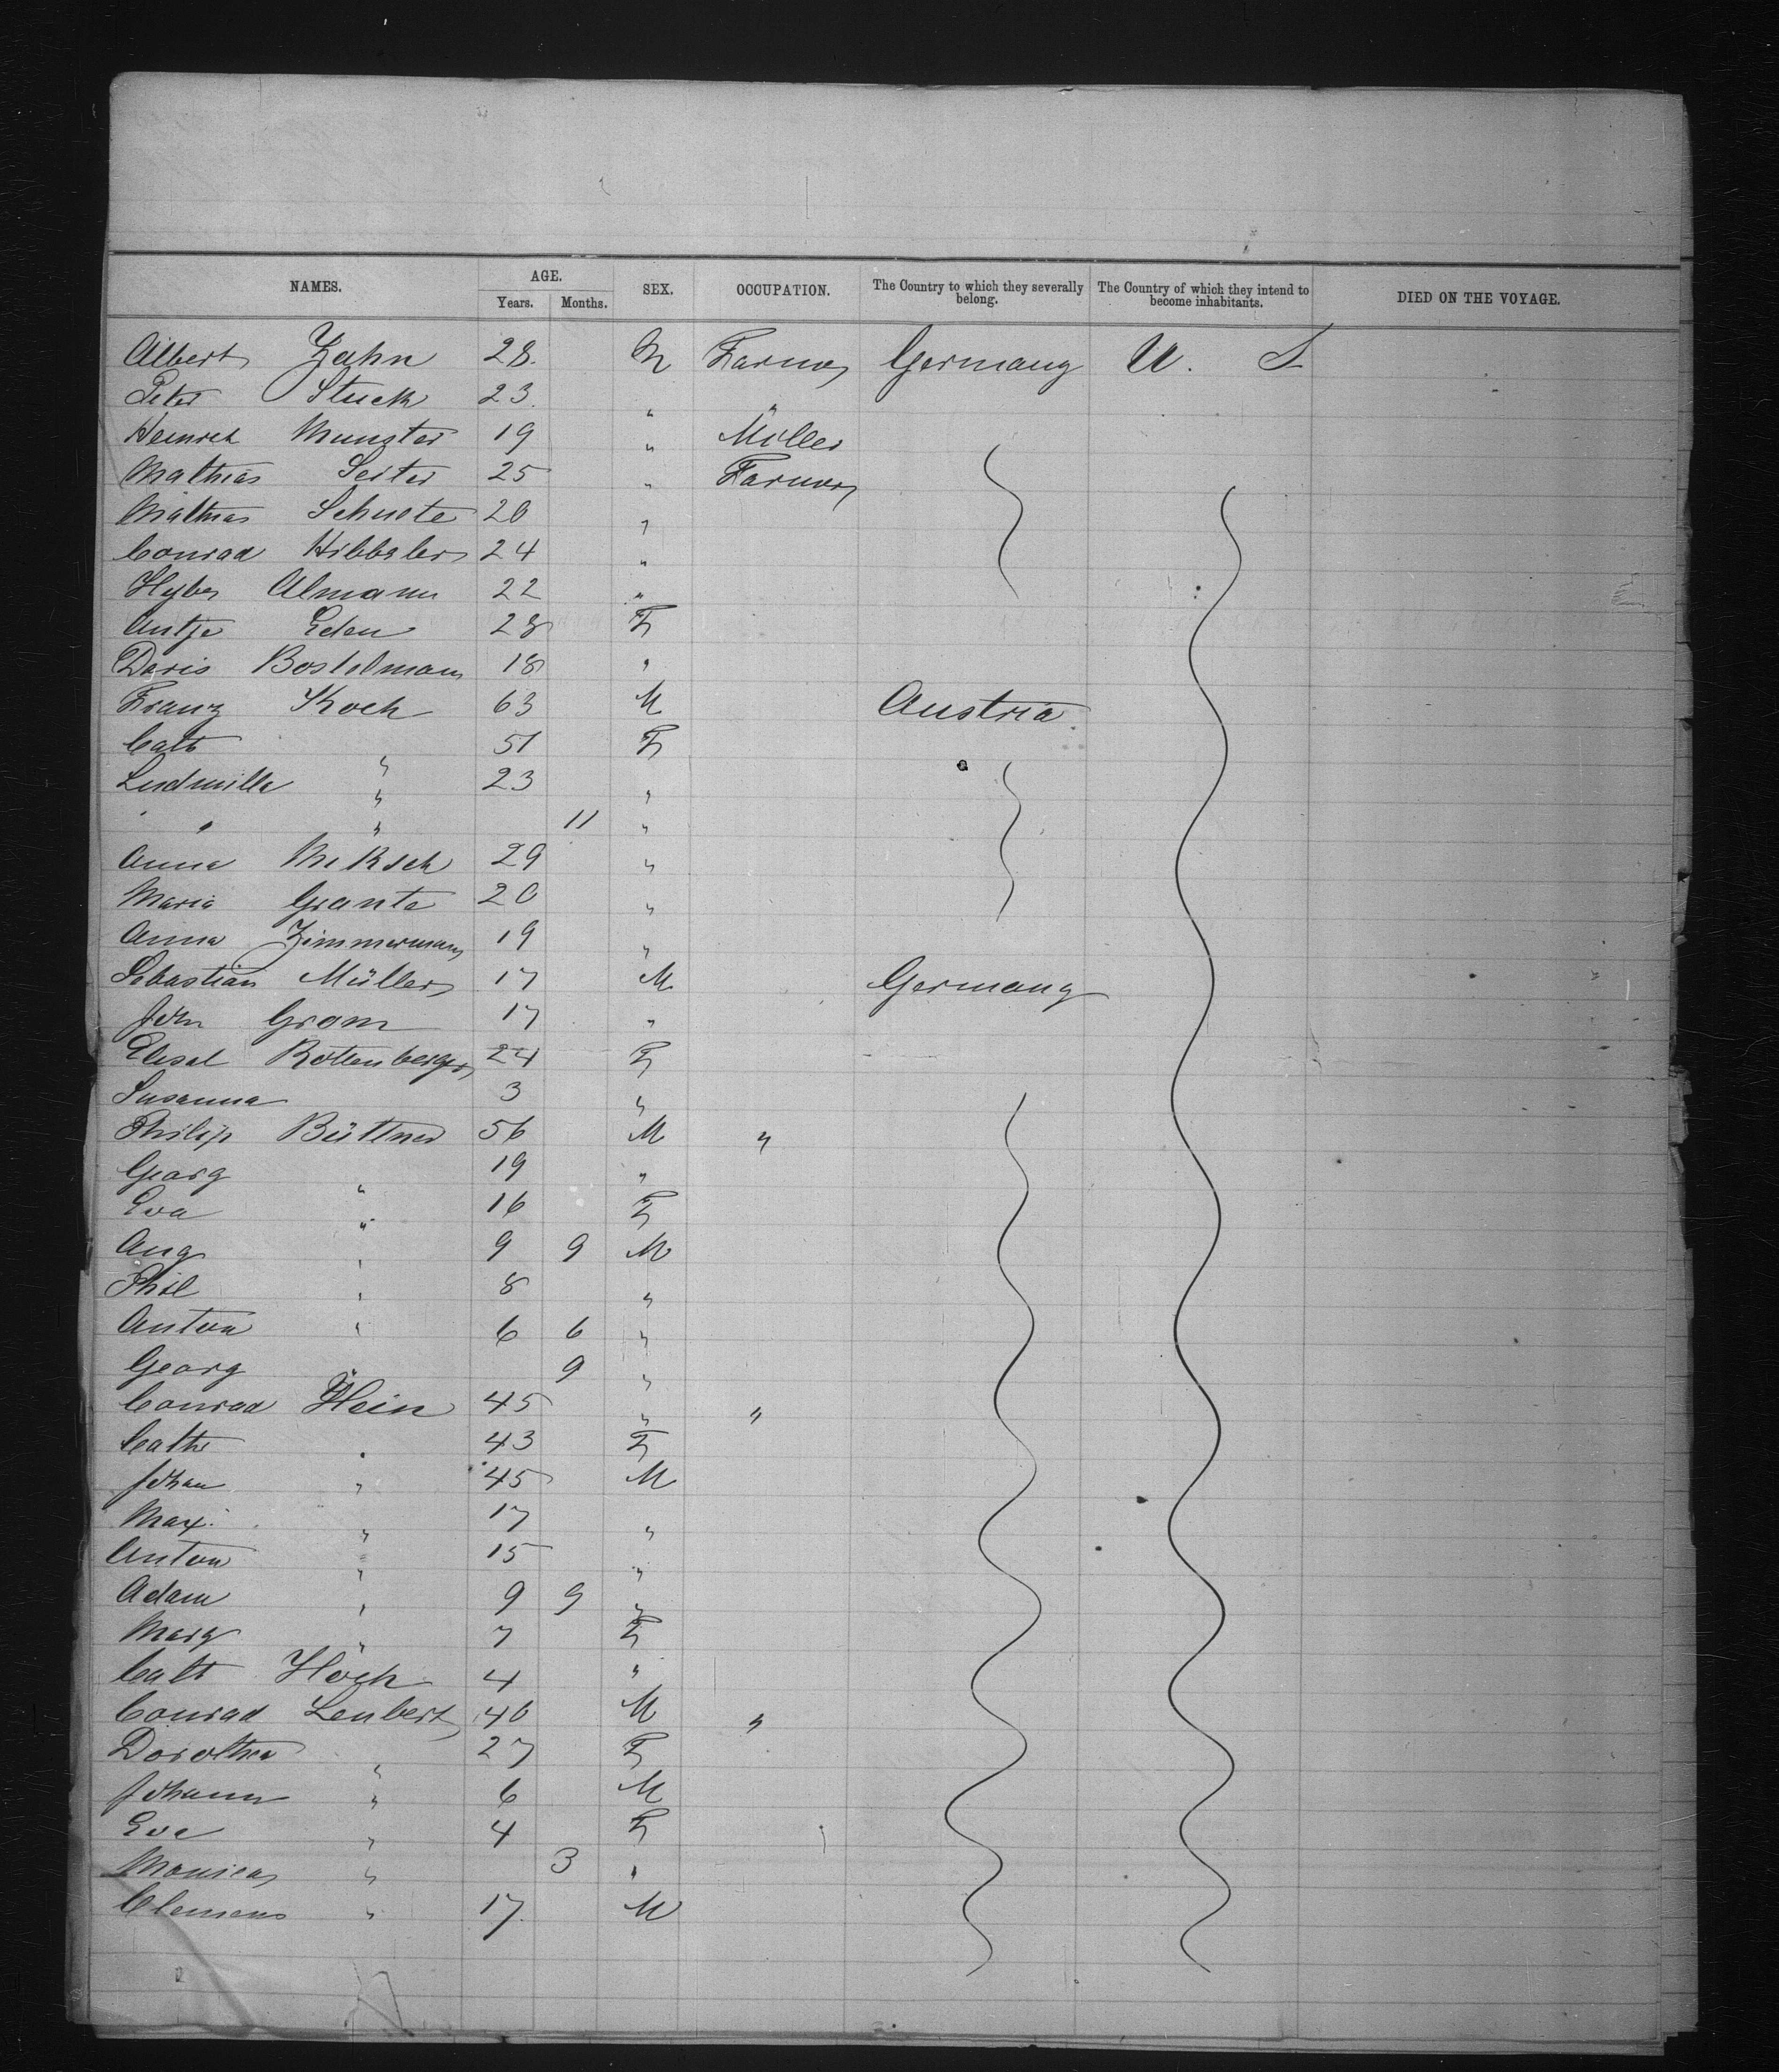 NAMES. AGE. Years. Months. SEX. OCCUPATION. The Country to which they severally belong. The Country of which they intend to become inhabitants. DIED ON THE VOYAGE.
Albert Zahn 28. M Farmer Germany U. S
Peter Stuck 23. " "
Heinrich Munster 19 " Möller
Mathias Seiter 25 " Farmer
Mathias Schuete 20 "
Conrad 24 "
Almann 22 "
Antje Eden 28 F
Doris Bostelmann 18 "
Franz Koch 63 M Austria
Cath " 51 F
Ludmilla " 23 "
" " 11 "
Anna Miksch 29 "
Maria Grante 20 "
Anna Zimmermann 19 "
Sebastian Müller 17 M Germany
John Grom 17 "
Elisab Rottenberger 24 F
Susanna 3 "
Philip Büttner 56 M "
Georg " 19 "
Eva " 16 F
Aug " 9 9 M
Phil " 8 "
Anton " 6 6 "
Georg " 9 "
Conrad Hein 45 " "
Cath " 43 F
Johan " 45 M
Max. " 17 "
Anton " 15 "
Adam " 9 9 "
Marg " 7 F
Cath Hoch 4 "
Conrad Leubert 40 M "
Dorothea " 27 F
Johann " 6 M
Eva " 4 F
Monica " 3 "
Clemens " 17. M